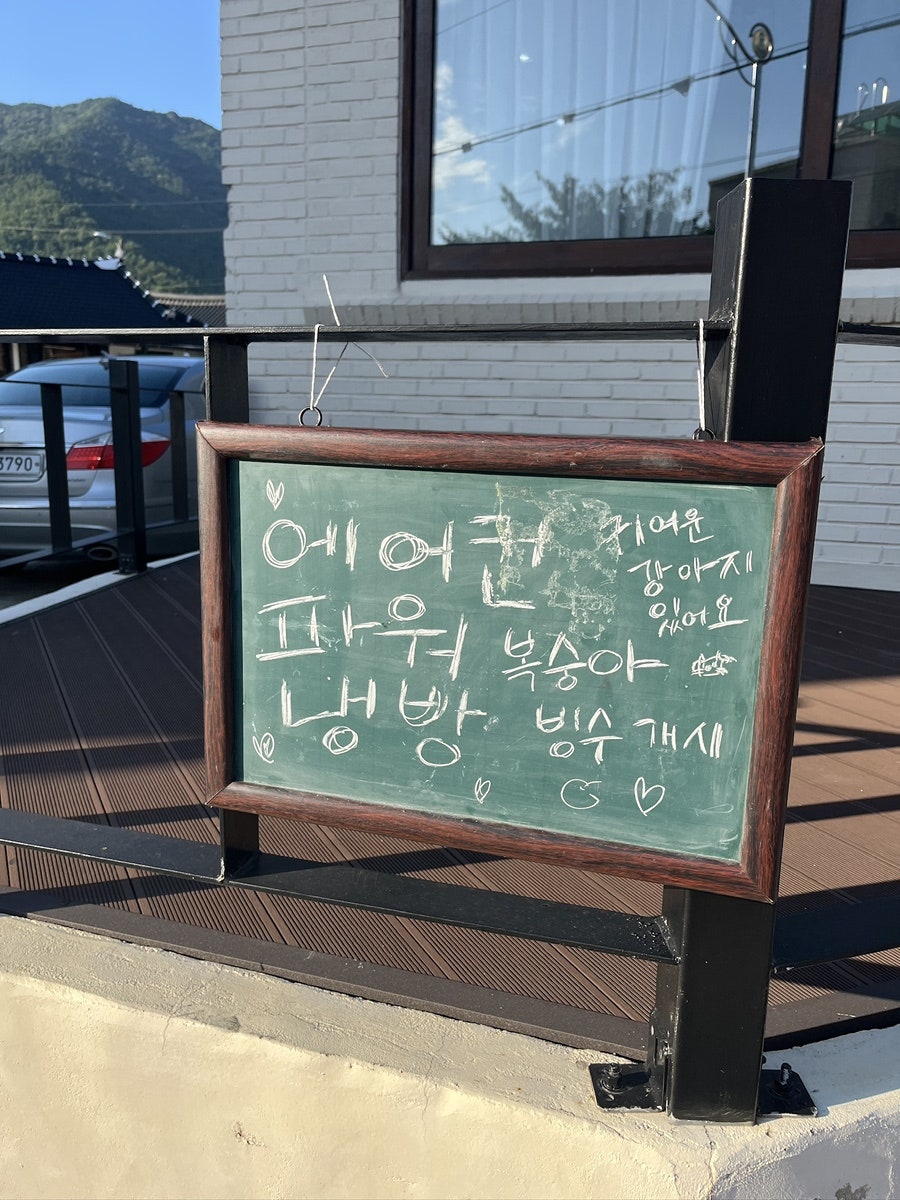 에어컨
파워
냉방
귀여운
강아지
있어요
복숭아
빙수 개시
3790